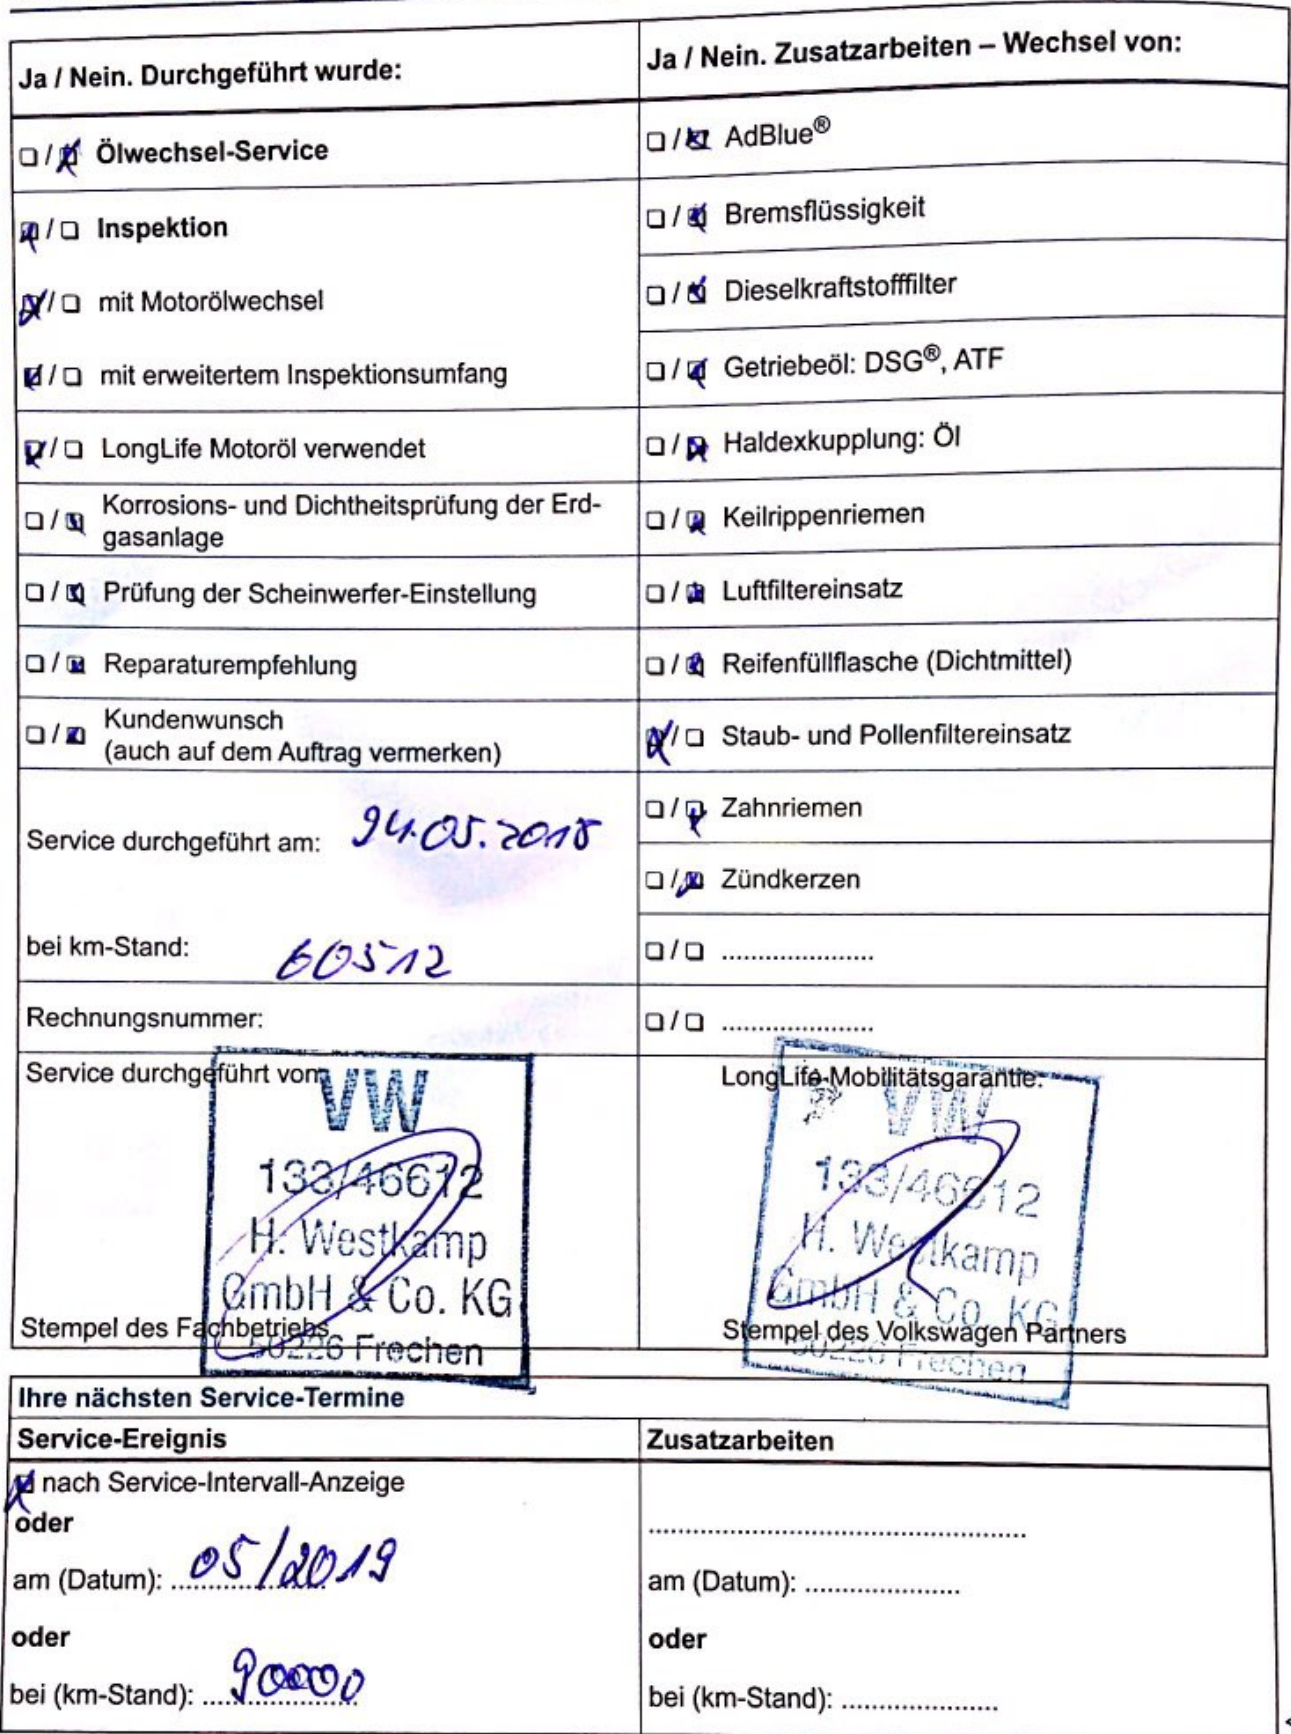 Ja / Nein. Durchgeführt wurde:
☐ / ☒ Ölwechsel-Service
☒ / ☐ Inspektion
☒ / ☐ mit Motorölwechsel
☒ / ☐ mit erweitertem Inspektionsumfang
☒ / ☐ LongLife Motoröl verwendet
☐ / ☒ Korrosions- und Dichtheitsprüfung der Erd-
gasanlage
☐ / ☒ Prüfung der Scheinwerfer-Einstellung
☐ / ☒ Reparaturempfehlung
☐ / ☒ Kundenwunsch
(auch auf dem Auftrag vermerken)
Service durchgeführt am:
bei km-Stand: 60512
Rechnungsnummer:
Service durchgeführt von
VW
133/46612
H. Westkamp
GmbH & Co. KG
50226 Frechen
Stempel des Fachbetriebs
Ja / Nein. Zusatzarbeiten – Wechsel von:
☐ / ☒ AdBlue®
☐ / ☒ Bremsflüssigkeit
☐ / ☒ Dieselkraftstofffilter
☐ / ☒ Getriebeöl: DSG®, ATF
☐ / ☒ Haldexkupplung: Öl
☐ / ☒ Keilrippenriemen
☐ / ☒ Luftfiltereinsatz
☐ / ☒ Reifenfüllflasche (Dichtmittel)
☒ / ☐ Staub- und Pollenfiltereinsatz
☐ / ☒ Zahnriemen
☐ / ☒ Zündkerzen
☐ / ☐ .....................
☐ / ☐ .....................
LongLife-Mobilitätsgarantie:
VW
133/46612
H. Westkamp
GmbH & Co. KG
50226 Frechen
Stempel des Volkswagen Partners
Ihre nächsten Service-Termine
Service-Ereignis
☒ nach Service-Intervall-Anzeige
oder
am (Datum): 05/2019
oder
bei (km-Stand): 90000
Zusatzarbeiten
....................................................
am (Datum): .....................
oder
bei (km-Stand): .....................